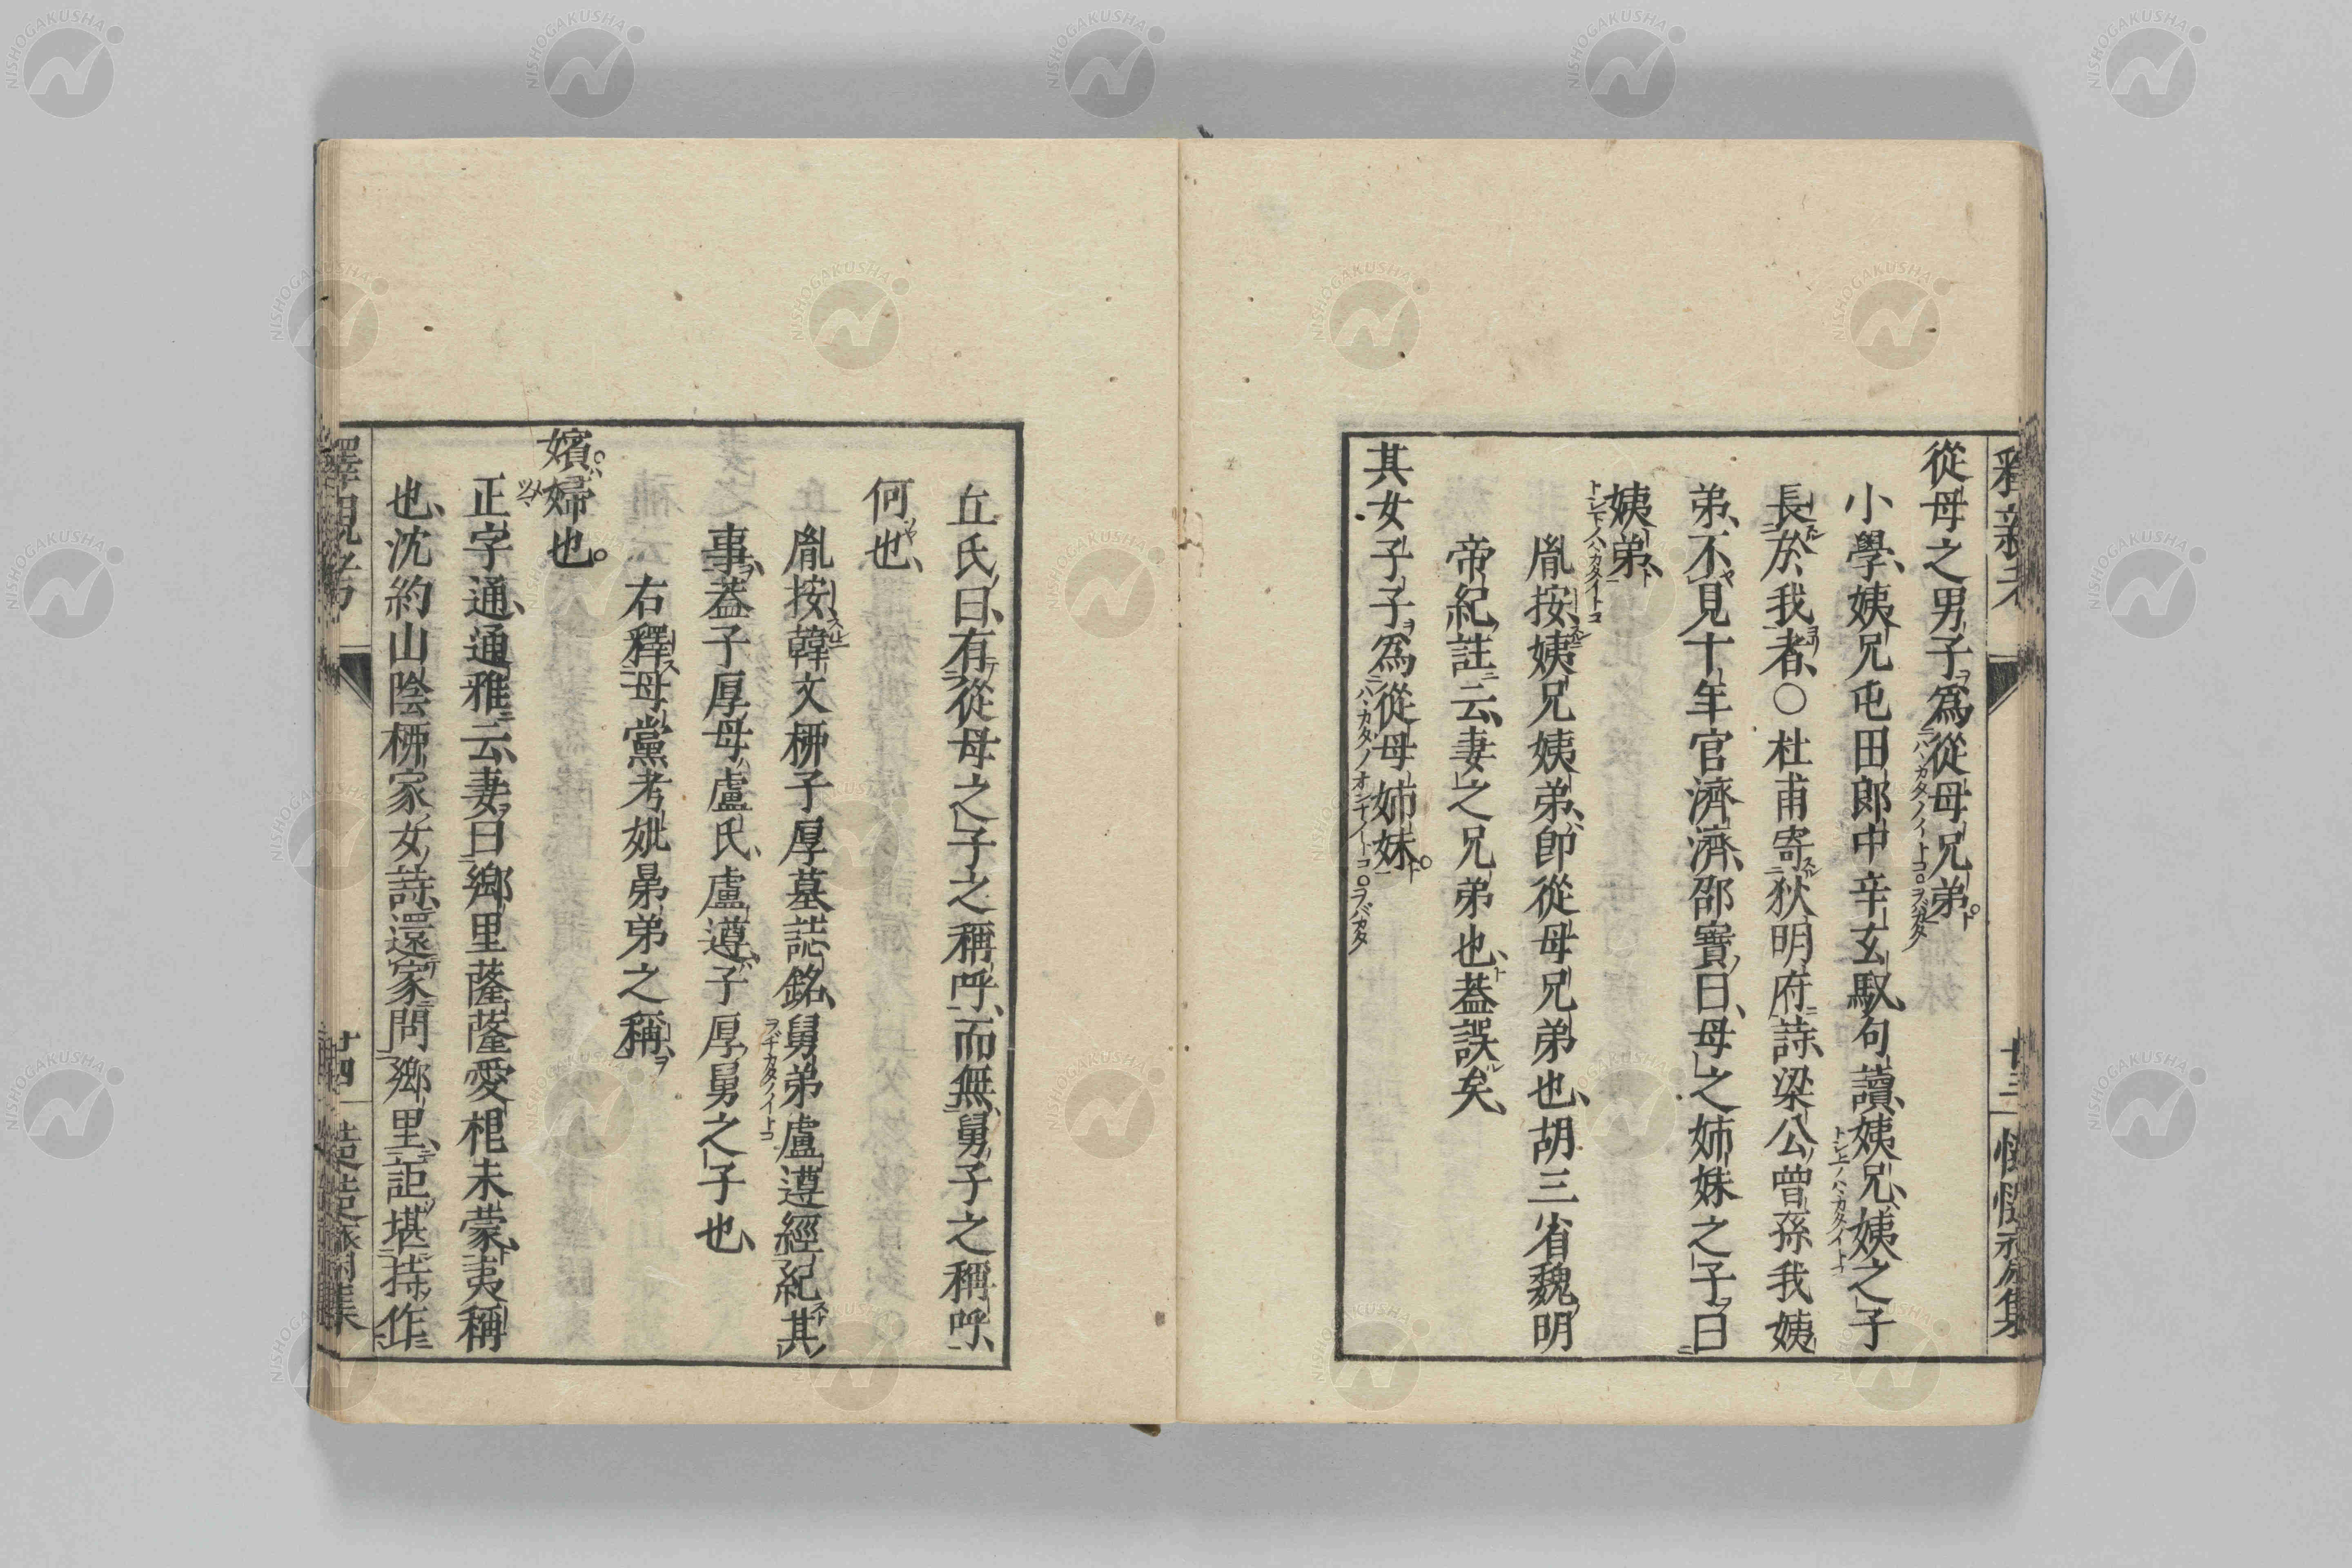 從母之男子爲從母兄弟。
小學、姨兄屯田郎中辛玄馭句讀、姨兄、姨之子
長於我者、○杜甫寄狄明府詩、梁公曾孫我姨
弟、不見十年官濟濟、邵寶曰、母之姉妹之子曰
姨弟、
胤按、姨兄姨弟、卽從母兄弟也、胡三省魏明
帝紀註云、妻之兄弟也、蓋誤矣、
其女子子爲從母姉妹。
丘氏曰、有從母之子之稱呼、而無舅子之稱呼、
何也、
胤按韓文栁子厚墓誌銘、舅弟盧遵經紀其
事、蓋子厚母盧氏、盧遵子厚舅之子也、
右釋母黨考妣昴弟之稱、
嬪婦也。
正字通、通雅云、妻曰鄉里薩薩愛棍未蒙、夷稱
也、沈約山陰栁家女詩、還家問鄉里、詎堪持作